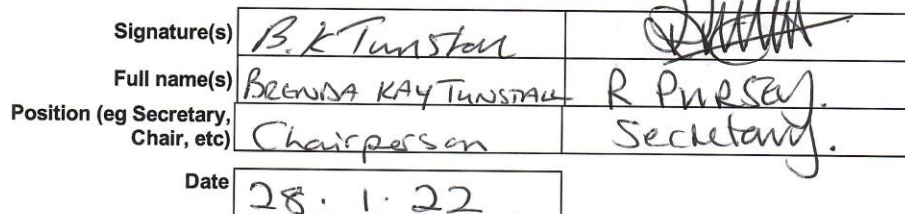 Signature(s) B.K Tunstall
Full name(s) BRENDA KAY TUNSTALL R PURSEY.
Position (eg Secretary, Chair, etc) Chairperson Secretary.
Date 28.1.22